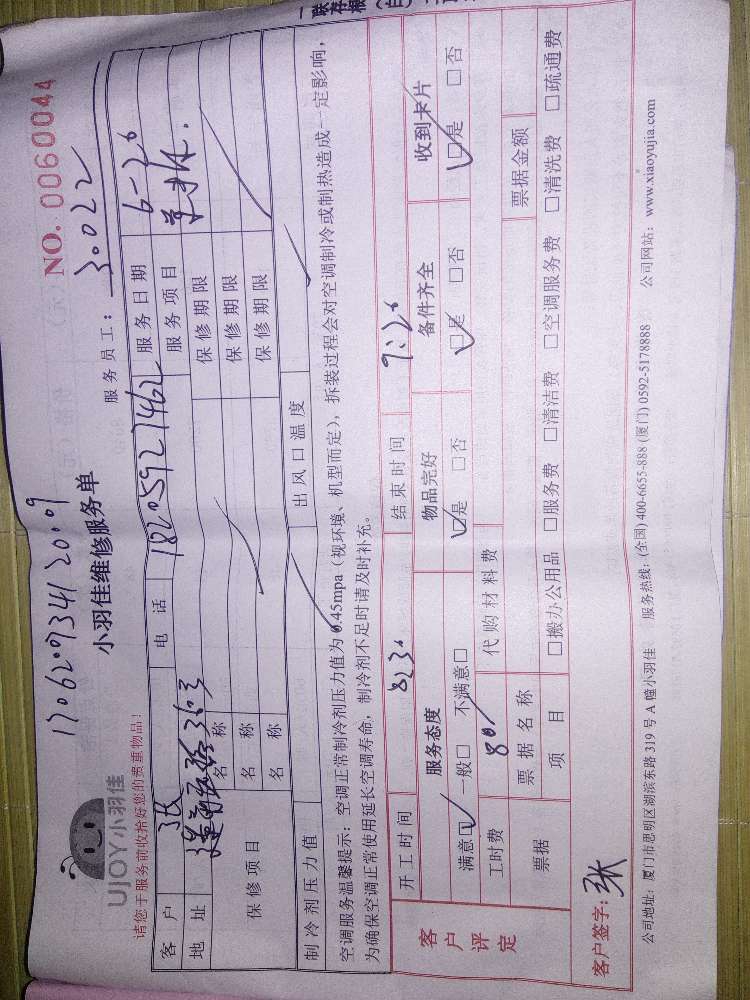 一联存根（白）
1706209341 20:09
NO. 0060044
UJOY小羽佳
小羽佳维修服务单
服务员工： 3.022
请您于服务前收拾好您的贵重物品！
客户 张 电话 18205927462 服务日期 6-26
地址 363 服务项目
保修项目 名称 保修期限
名称 保修期限
名称 保修期限
制冷剂压力值 出风口温度
空调服务温馨提示：空调正常制冷剂压力值为0.45mpa（视环境、机型而定），拆装过程会对空调制冷或制热造成一定影响，
为确保空调正常使用延长空调寿命，制冷剂不足时请及时补充。
客户评定 开工时间 8:30 结束时间 9:20
服务态度 物品完好 备件齐全 收到卡片
满意☑ 一般□ 不满意□ ☑是 □否 ☑是 □否 ☑是 □否
工时费 80 代购材料费
票据 票据名称 票据金额
项目 □搬办公用品 □服务费 □清洁费 □空调服务费 □清洗费 □疏通费
客户签字：张
公司地址：厦门市思明区湖滨东路 319 号 A 幢小羽佳 服务热线：(全国) 400-6655-888 (厦门) 0592-5178888 公司网站：www.xiaoyujia.com